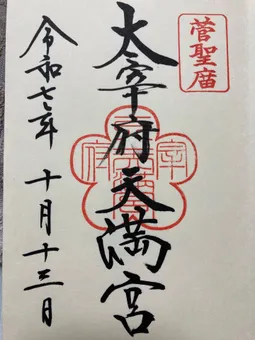 菅聖廟
太宰府天満宮
令和七年 十月十三日